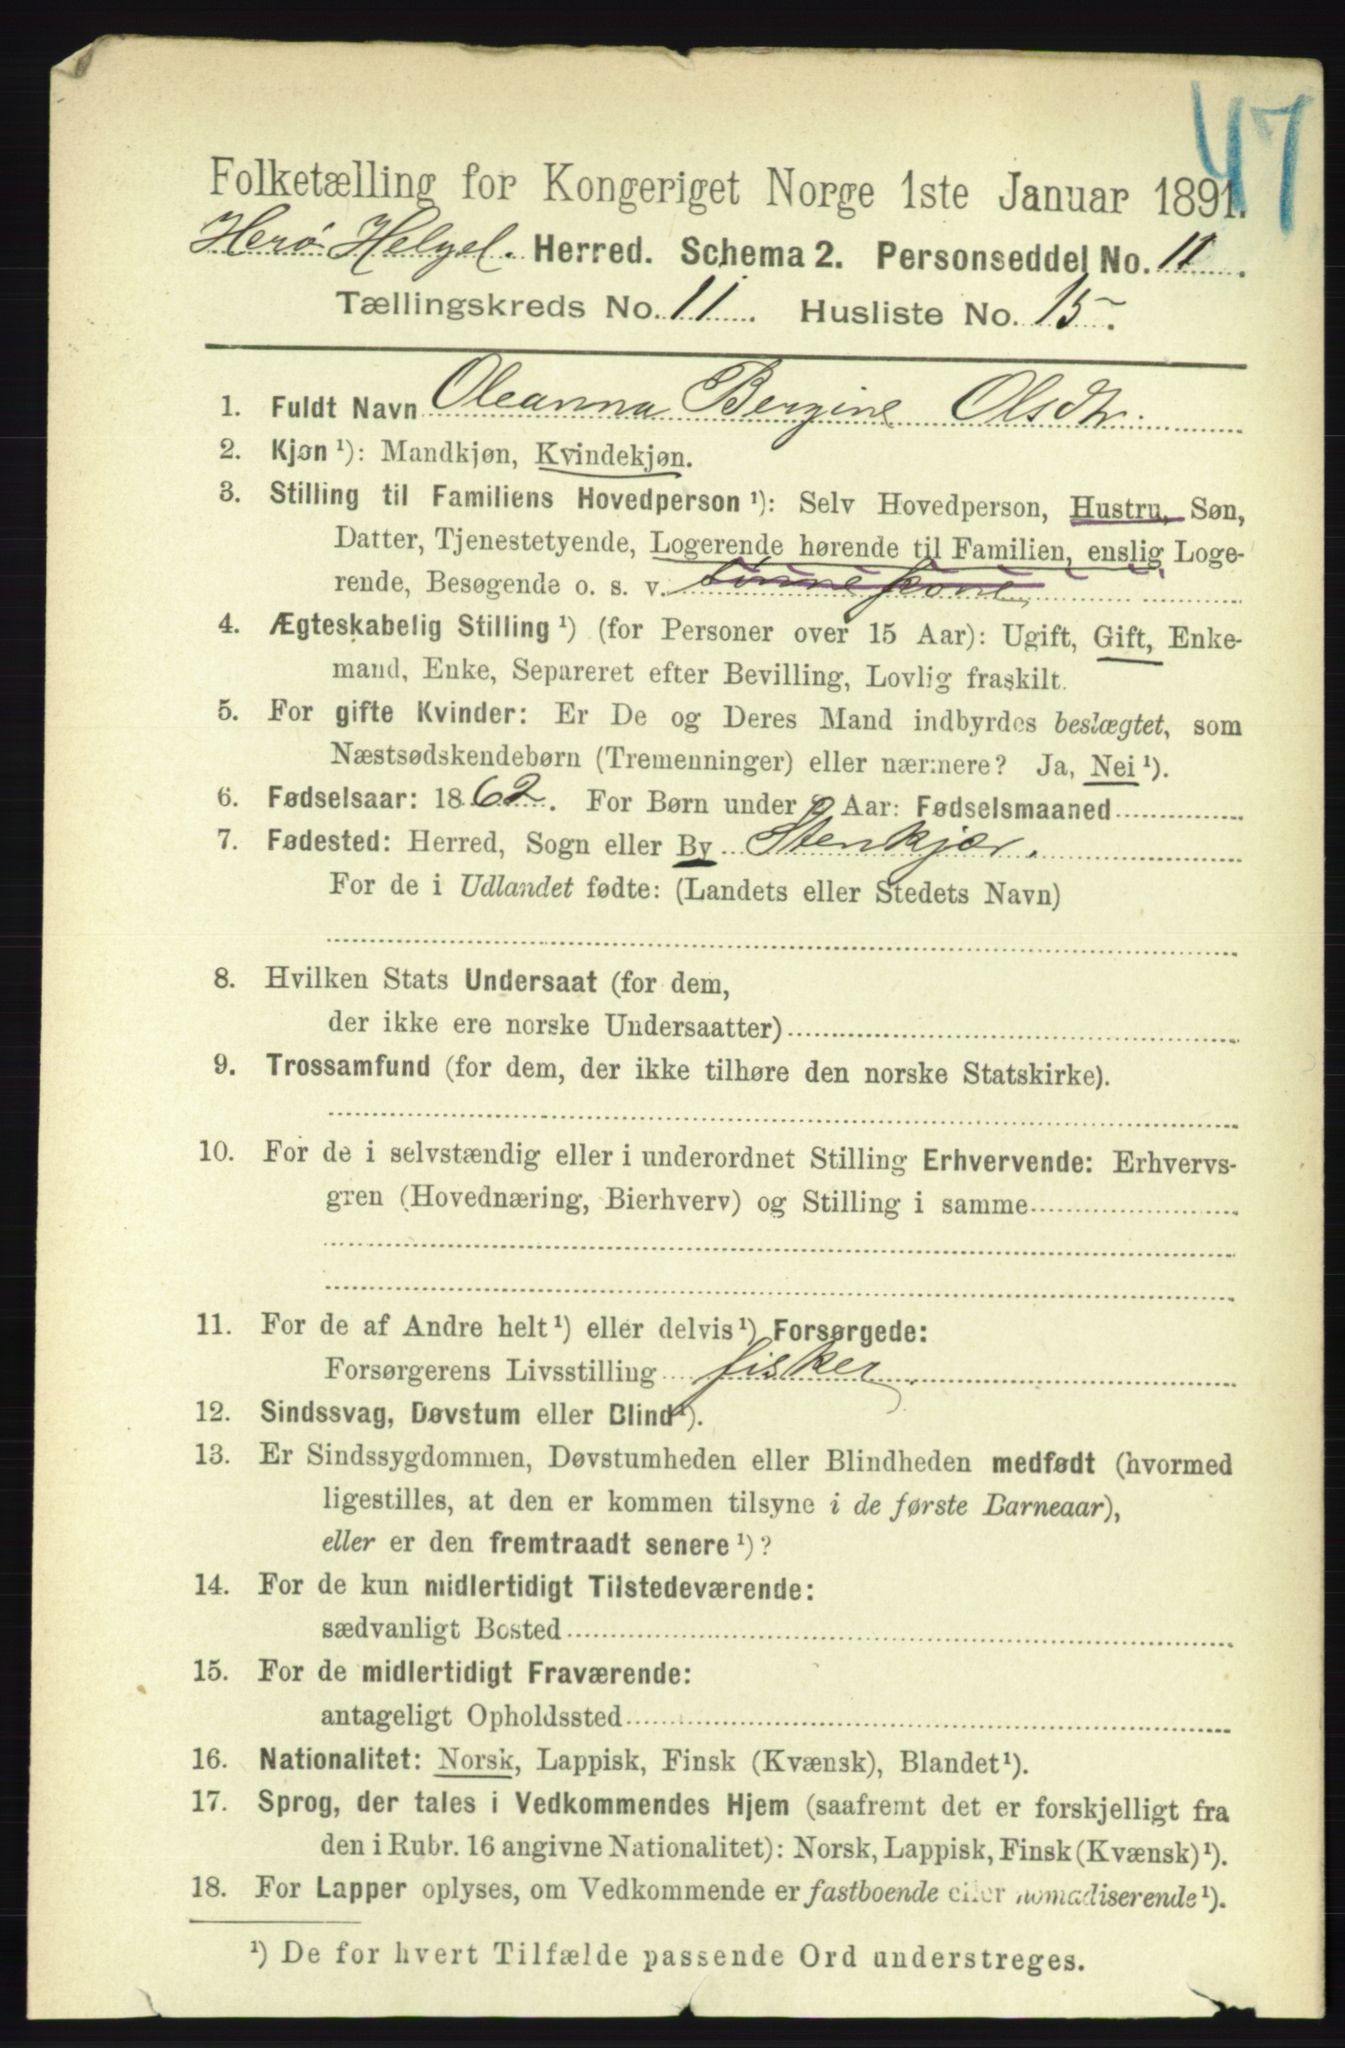 47
Folketælling for Kongeriget Norge 1ste Januar 1891.
Herø Helgel. Herred. Schema 2. Personseddel No. 11.
Tællingskreds No. 11. Husliste No. 15.
1. Fuldt Navn Oleanna Bergine Olsdtr.
2. Kjøn ¹): Mandkjøn, Kvindekjøn.
3. Stilling til Familiens Hovedperson ¹): Selv Hovedperson, Hustru, Søn,
Datter, Tjenestetyende, Logerende hørende til Familien, enslig Loge-
rende, Besøgende o. s. v.
4. Ægteskabelig Stilling ¹) (for Personer over 15 Aar): Ugift, Gift, Enke-
mand, Enke, Separeret efter Bevilling, Lovlig fraskilt.
5. For gifte Kvinder: Er De og Deres Mand indbyrdes beslægtet, som
Næstsødskendebørn (Tremenninger) eller nærmere? Ja, Nei ¹).
6. Fødselsaar: 1862. For Børn under 2 Aar: Fødselsmaaned
7. Fødested: Herred, Sogn eller By Stenkjær.
For de i Udlandet fødte: (Landets eller Stedets Navn)
8. Hvilken Stats Undersaat (for dem,
der ikke ere norske Undersaatter)
9. Trossamfund (for dem, der ikke tilhøre den norske Statskirke).
10. For de i selvstændig eller i underordnet Stilling Erhvervende: Erhvervs-
gren (Hovednæring, Bierhverv) og Stilling i samme
11. For de af Andre helt ¹) eller delvis ¹) Forsørgede:
Forsørgerens Livsstilling fisker
12. Sindssvag, Døvstum eller Blind ¹).
13. Er Sindssygdommen, Døvstumheden eller Blindheden medfødt (hvormed
ligestilles, at den er kommen tilsyne i de første Barneaar),
eller er den fremtraadt senere ¹)?
14. For de kun midlertidigt Tilstedeværende:
sædvanligt Bosted
15. For de midlertidigt Fraværende:
antageligt Opholdssted
16. Nationalitet: Norsk, Lappisk, Finsk (Kvænsk), Blandet ¹).
17. Sprog, der tales i Vedkommendes Hjem (saafremt det er forskjelligt fra
den i Rubr. 16 angivne Nationalitet): Norsk, Lappisk, Finsk (Kvænsk) ¹).
18. For Lapper oplyses, om Vedkommende er fastboende eller nomadiserende ¹).
¹) De for hvert Tilfælde passende Ord understreges.